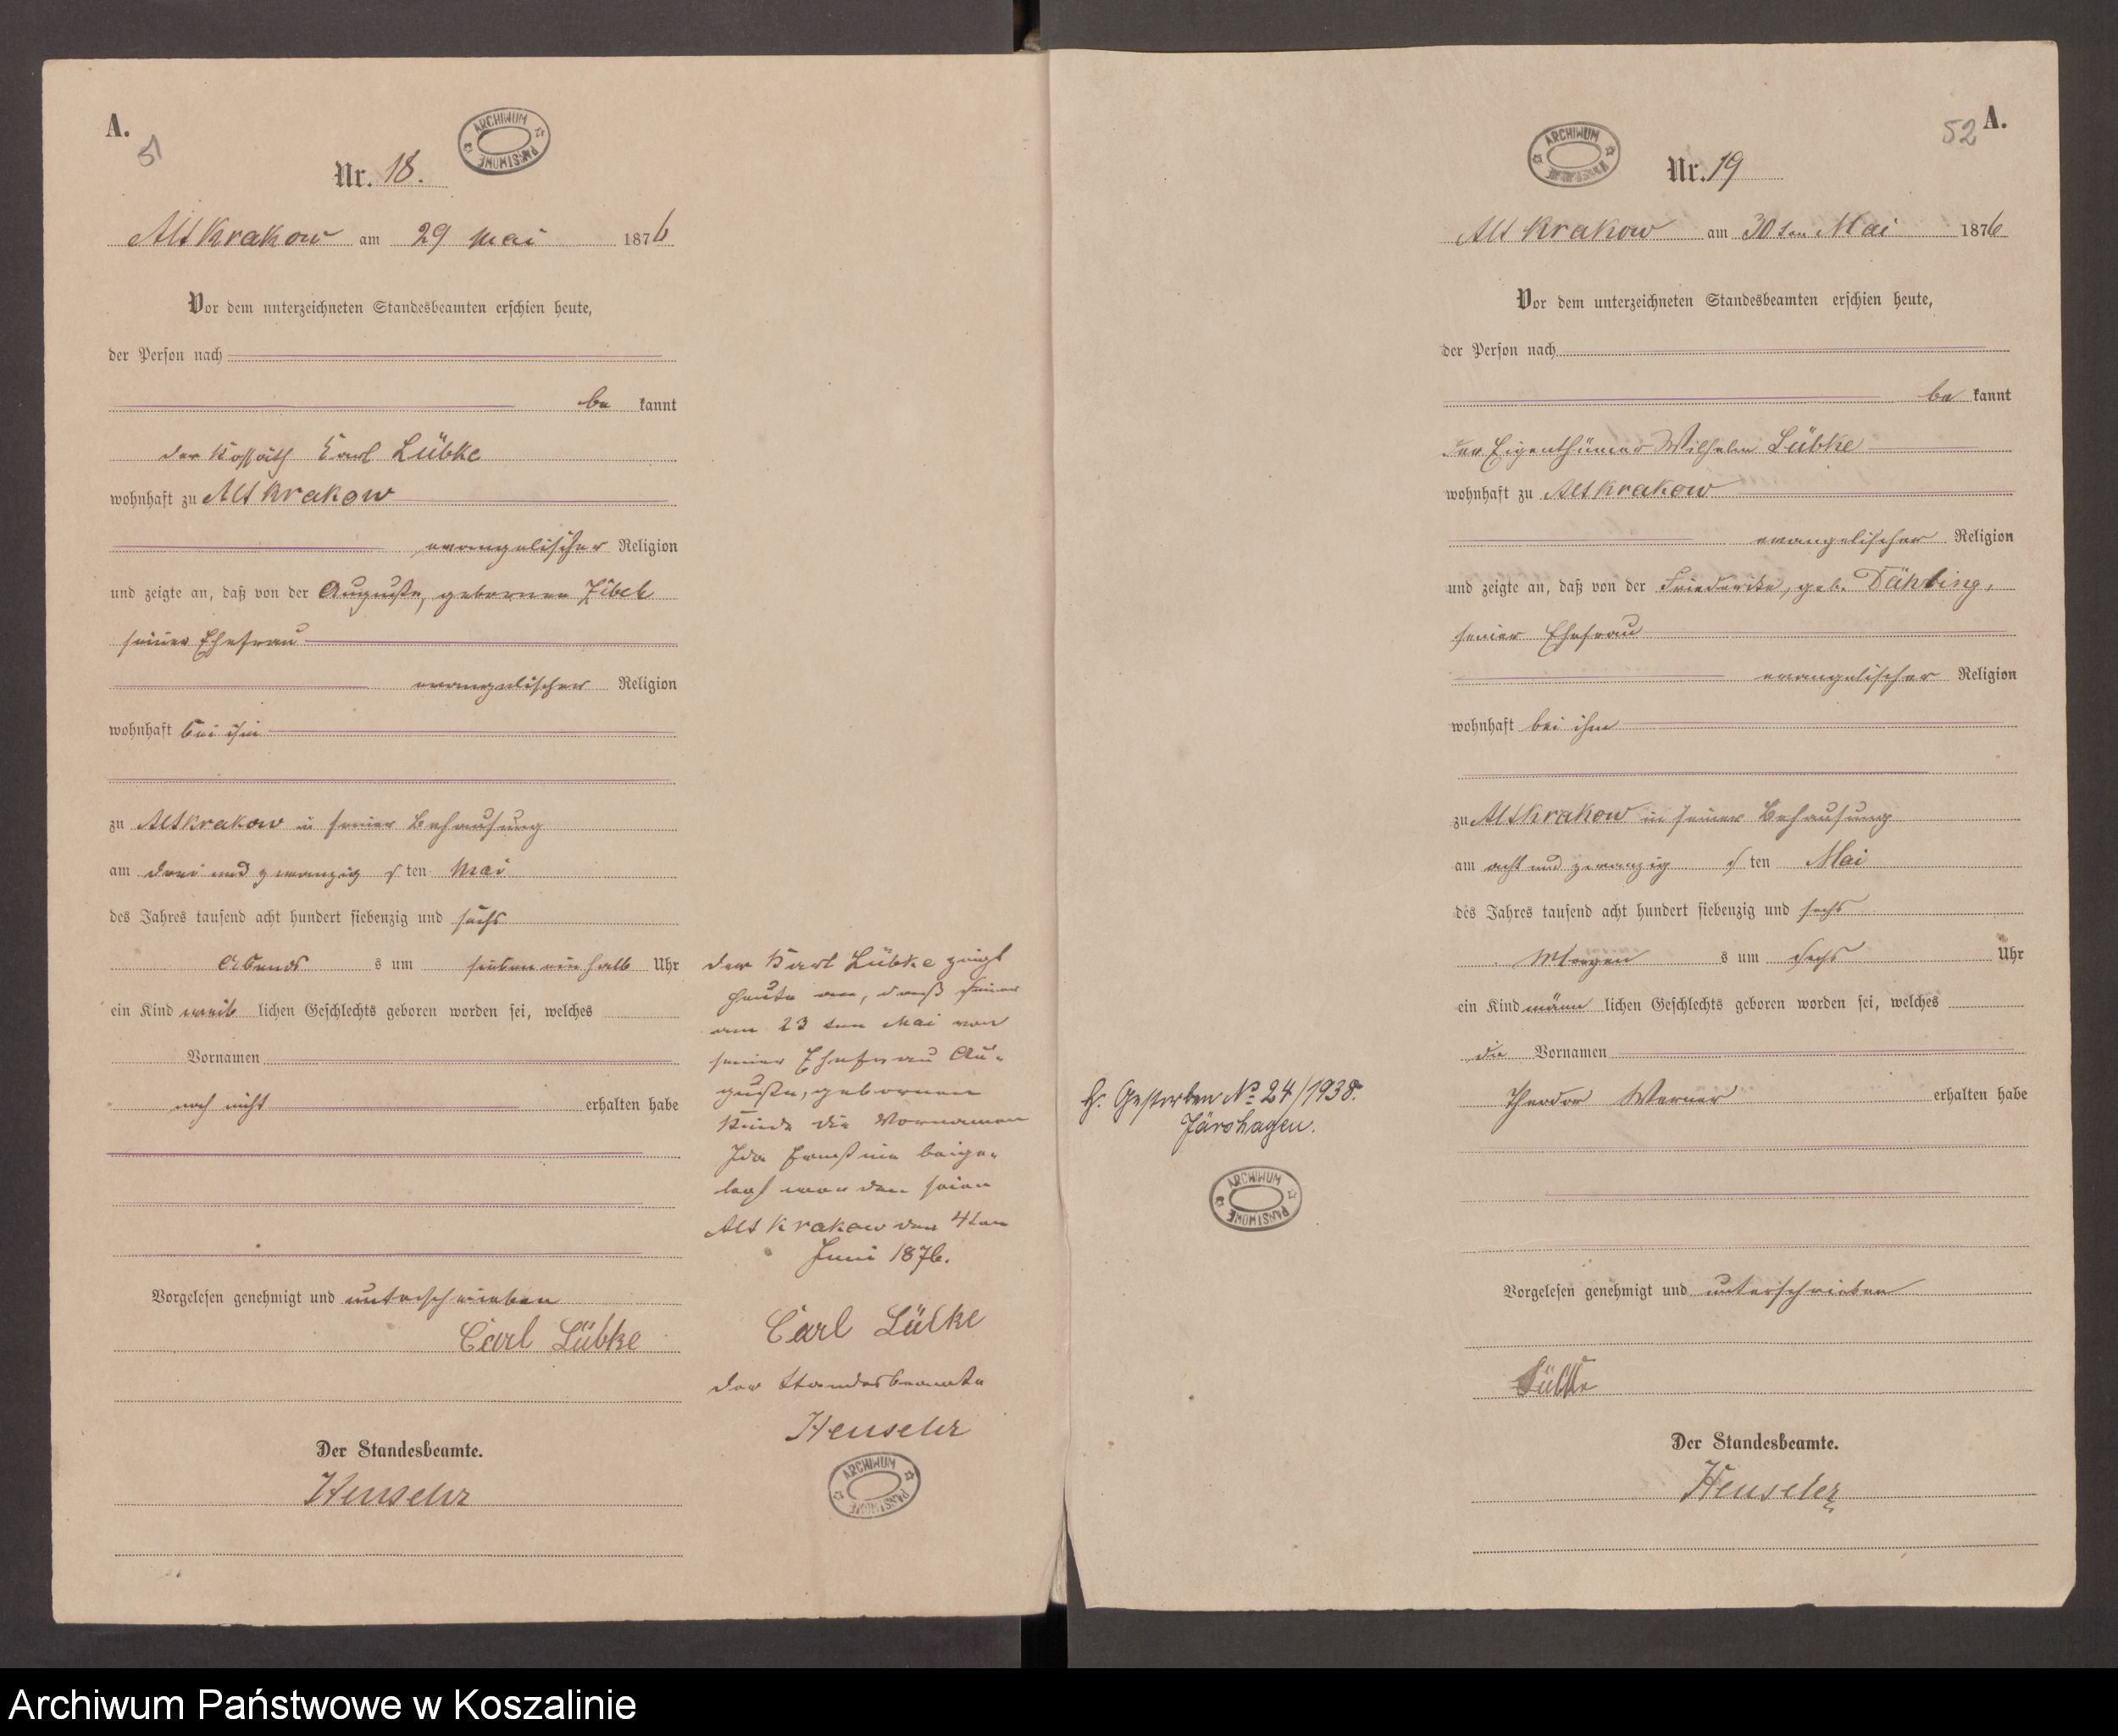 A.
51
ARCHIWUM PAŃSTWOWE
Nr. 18.
Alt Krakow am 29 Mai 1876
Vor dem unterzeichneten Standesbeamten erschien heute,
der Person nach
be kannt
der Kossäth Carl Lübke
wohnhaft zu Alt Krakow
evangelischer Religion
und zeigte an, daß von der Auguste, geborenen
seiner Ehefrau
evangelischer Religion
wohnhaft bei ihm
zu Alt Krakow in seiner Behausung
am drei und zwanzig s ten Mai
des Jahres tausend acht hundert siebenzig und sechs
Abends s um sieben ein halb Uhr
ein Kind weib lichen Geschlechts geboren worden sei, welches
Vornamen
noch nicht erhalten habe
Vorgelesen genehmigt und unterschrieben
Carl Lübke
Der Standesbeamte.
Henseler
der Karl Lübke zeigt
heute an, daß seiner
am 23 ten Mai von
seiner Ehefrau Au-
guste, geborenen
Kinde die Vornamen
Ida Ernstine beige-
legt worden seien
Alt Krakow den 4ten
Juni 1876.
Carl Lübke
der Standesbeamte
Henseler
ARCHIWUM PAŃSTWOWE
52 A.
ARCHIWUM PAŃSTWOWE
Nr. 19
Alt Krakow am 30 ten Mai 1876
Vor dem unterzeichneten Standesbeamten erschien heute,
der Person nach
be kannt
der Eigenthümer Wilhelm Lübke
wohnhaft zu Alt Krakow
evangelischer Religion
und zeigte an, daß von der Friederike, geb. Dähling,
seiner Ehefrau
evangelischer Religion
wohnhaft bei ihm
zu Alt Krakow in seiner Behausung
am acht und zwanzig s ten Mai
des Jahres tausend acht hundert siebenzig und sechs
Morgen s um sechs Uhr
ein Kind männ lichen Geschlechts geboren worden sei, welches
die Vornamen
Theodor Werner erhalten habe
Vorgelesen genehmigt und unterschrieben
Lübke
Der Standesbeamte.
Henseler
Gestorben No 24/1938.
Järshagen.
ARCHIWUM PAŃSTWOWE
Archiwum Państwowe w Koszalinie